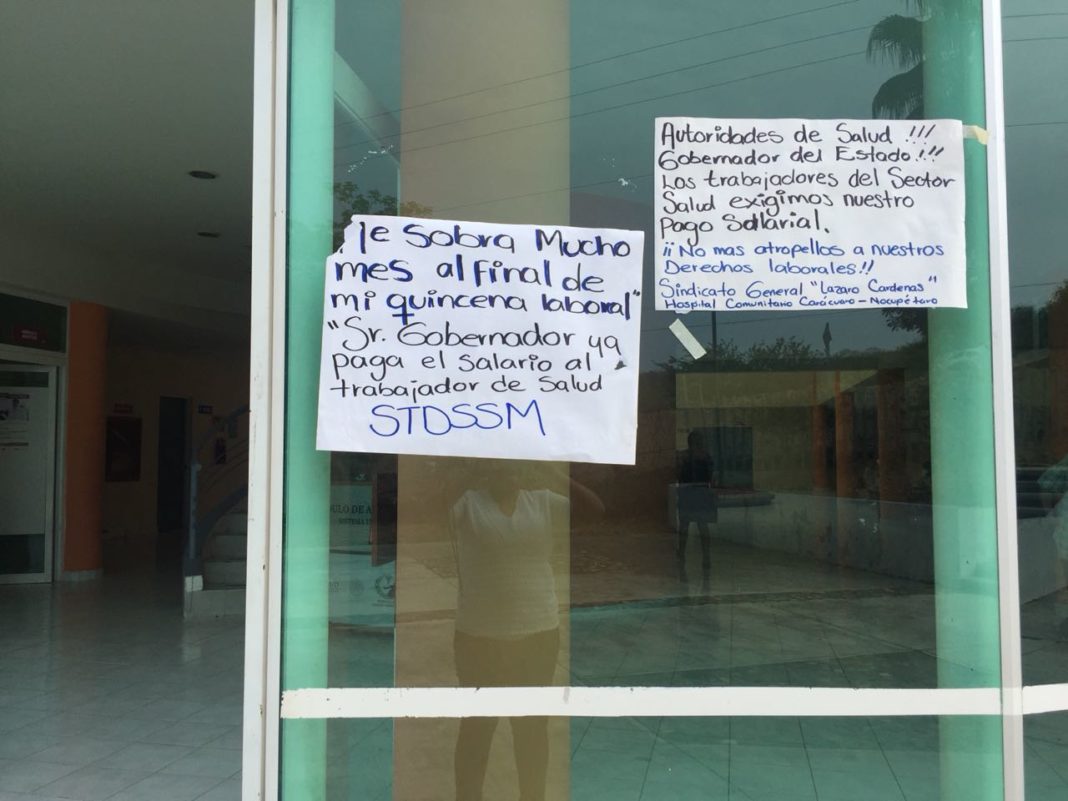 le sobra Mucho
mes al final de
mi quincena laboral"
"Sr. Gobernador ya
paga el salario al
trabajador de Salud
STDSSM
Autoridades de Salud !!!
Gobernador del Estado!!!
Los trabajadores del Sector
Salud exigimos nuestro
pago salarial.
¡¡No mas atropellos a nuestros
Derechos laborales!!
Sindicato General "Lazaro Cardenas"
Hospital Comunitario Carácuaro - Nocupétaro